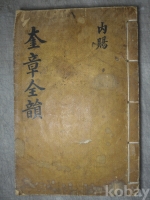 内賜
奎章全韻
kobay